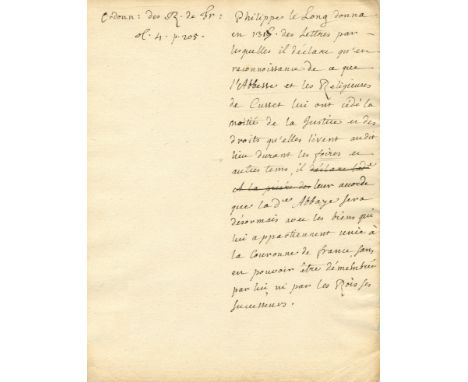 Ordonn: des R. de fr:
t. 4. p. 205.
Philippes le Long donna
en 1318. des Lettres par
lesquelles il déclare qu'en
reconnoissance de ce que
l'Abbesse et les Religieuses
de Cusset lui ont cédé la
moitié de la Justice et des
droits qu'elles lévent audit
lieu durant les foires et
autres tems, il déclare
à la prière des leur accorde
que lad.e Abbaye sera
désormais avec les biens qui
lui appartiennent unie à
la Couronne de france sans
en pouvoir être démembrée
par lui, ni par les Rois ses
successeurs.